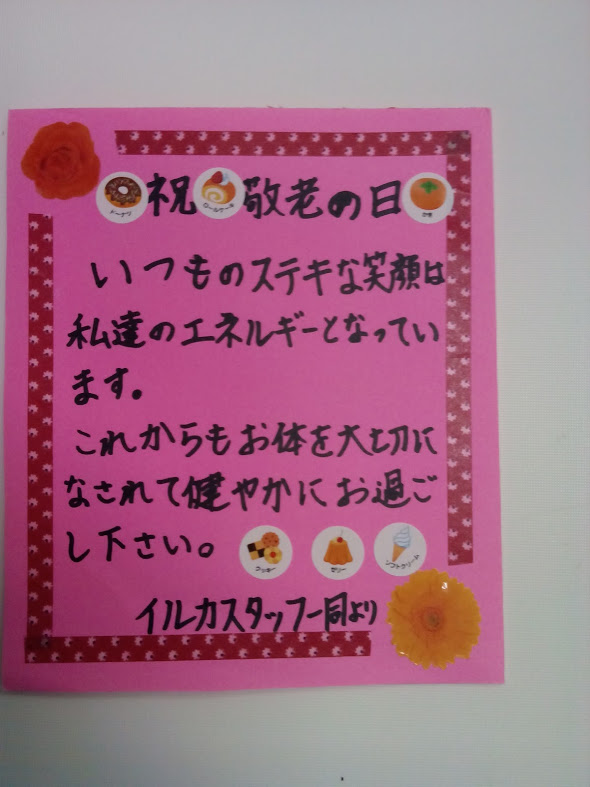 祝 敬老の日
ドーナツ
ロールケーキ
かき
いつものステキな笑顔は
私達のエネルギーとなってい
ます。
これからもお体を大切に
なされて健やかにお過ご
し下さい。
クッキー
ゼリー
ソフトクリーム
イルカスタッフ一同より